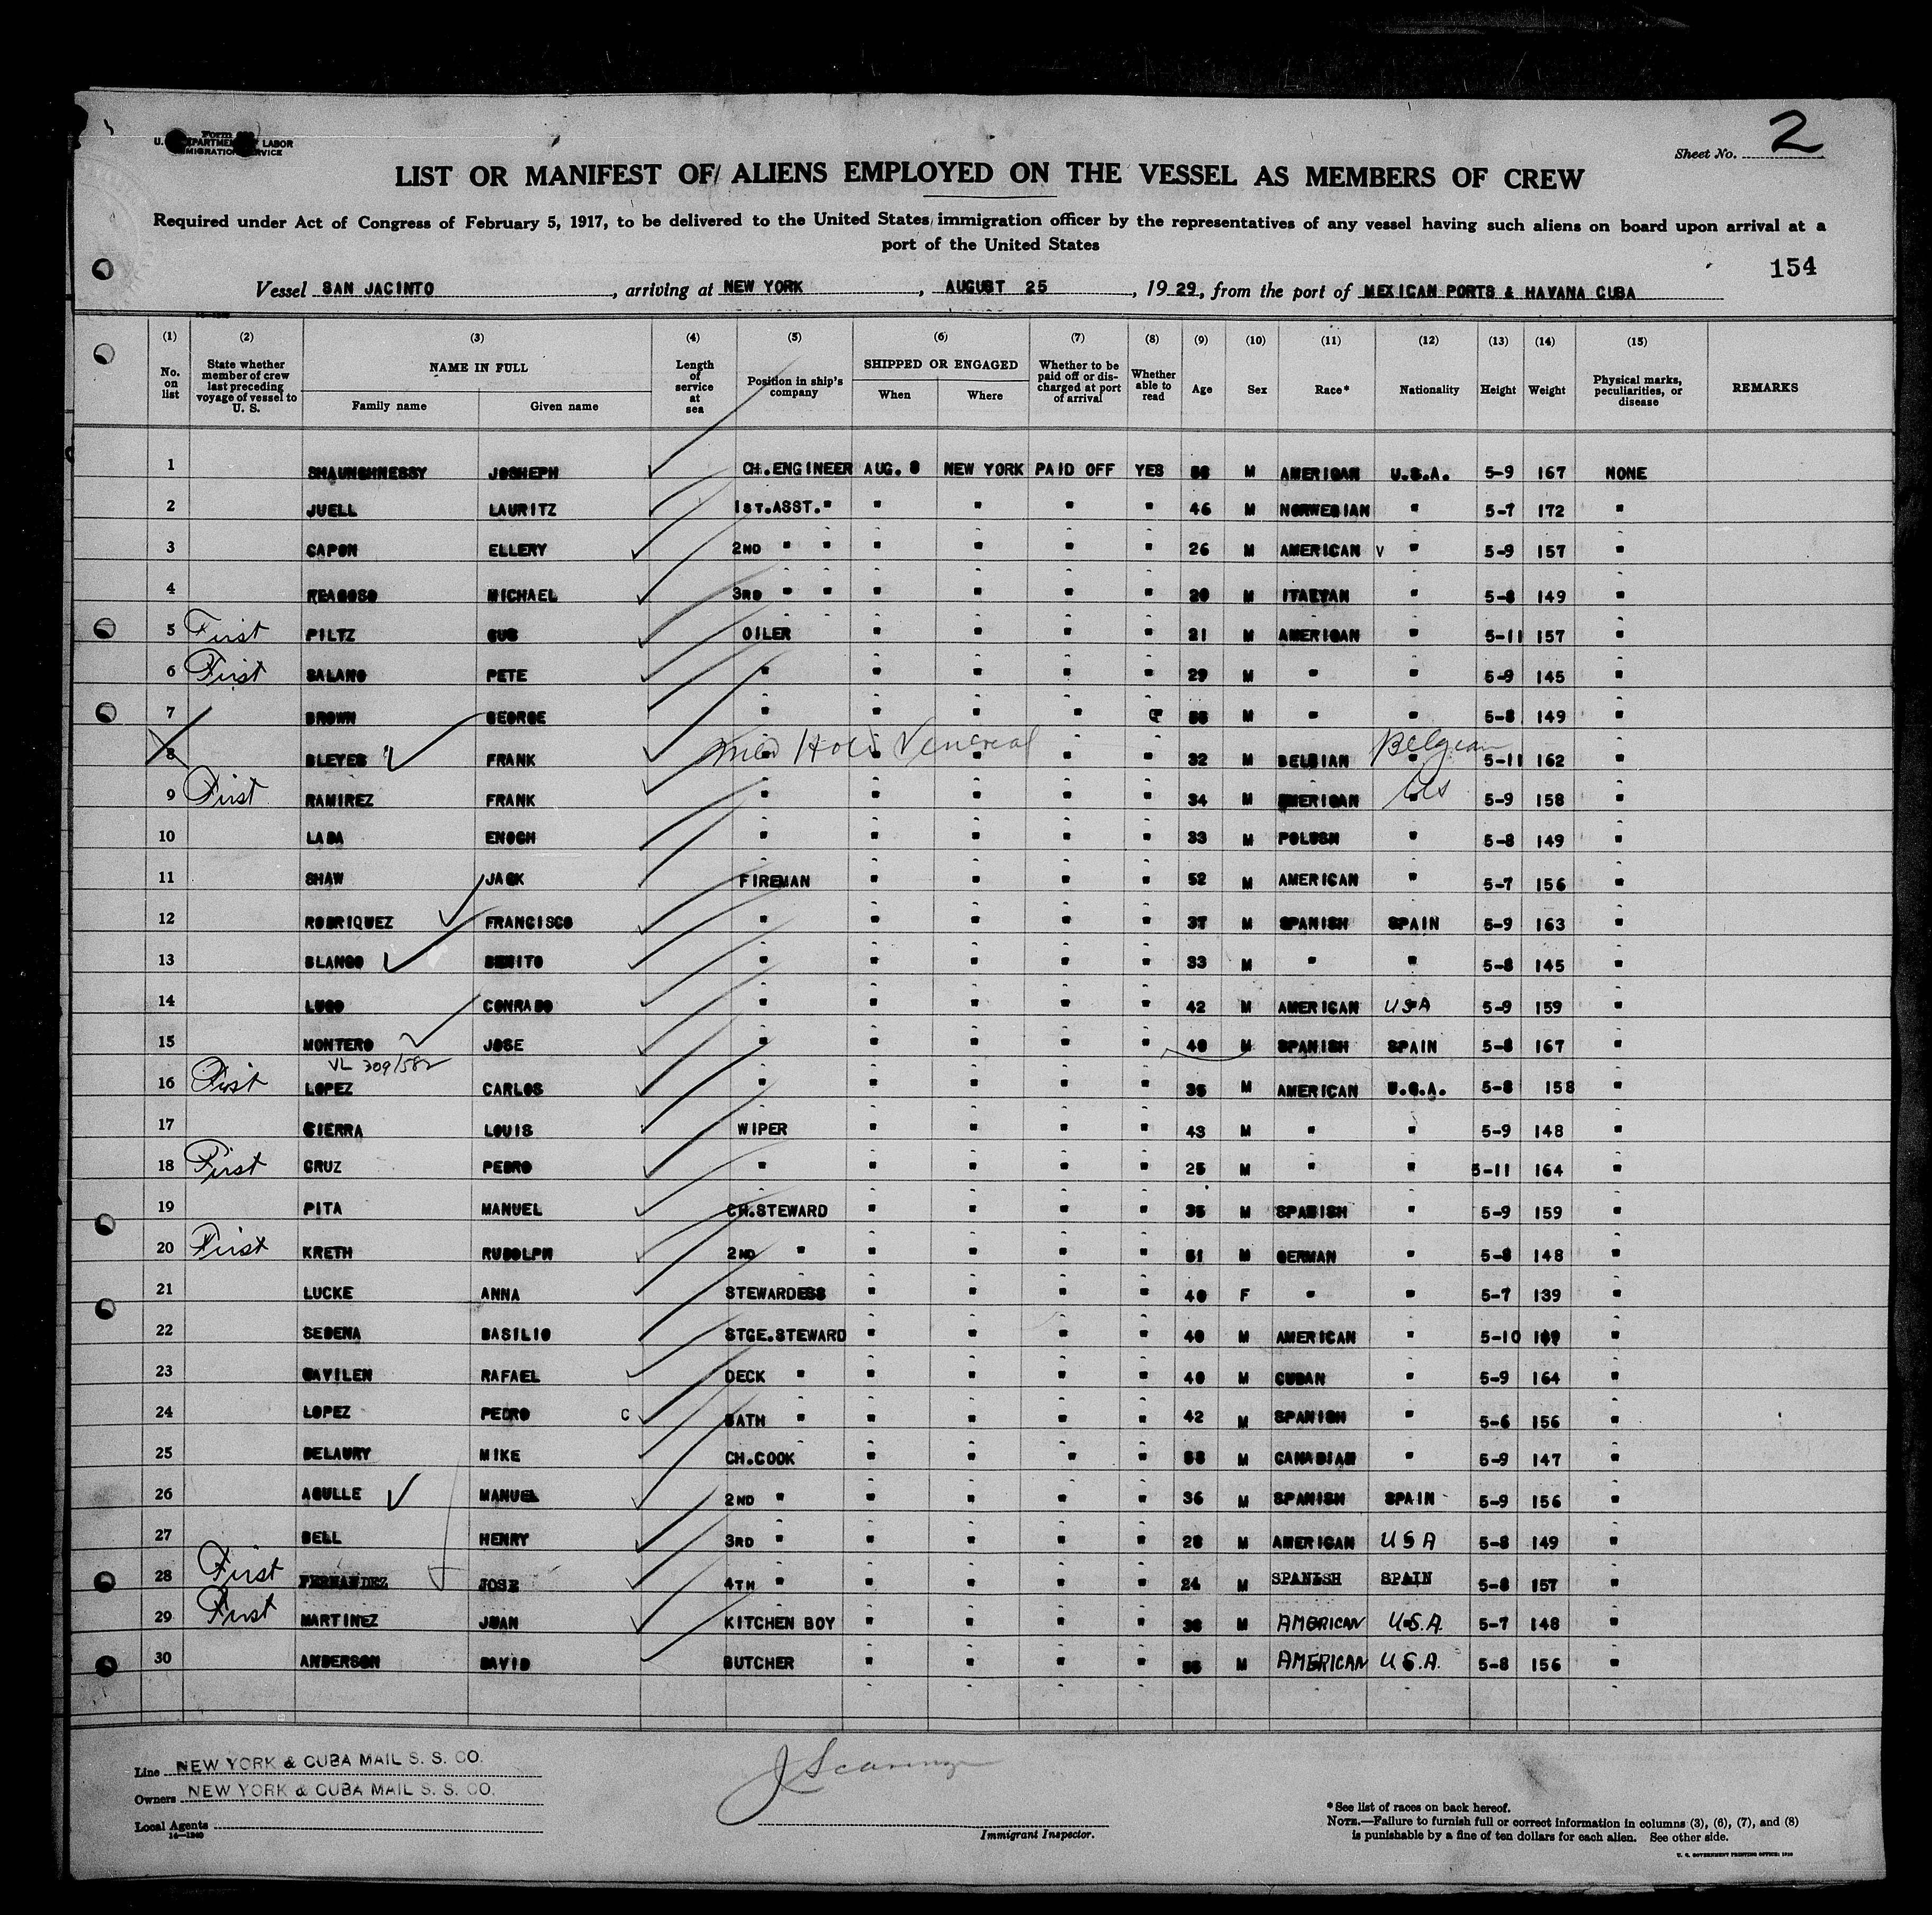 Form
U. DEPARTMENT LABOR
IMMIGRATION SERVICE
Sheet No. 2
LIST OR MANIFEST OF ALIENS EMPLOYED ON THE VESSEL AS MEMBERS OF CREW
Required under Act of Congress of February 5, 1917, to be delivered to the United States immigration officer by the representatives of any vessel having such aliens on board upon arrival at a
port of the United States
154
Vessel SAN JACINTO, arriving at NEW YORK, AUGUST 25, 1929, from the port of MEXICAN PORTS & HAVANA CUBA
(1) (2) (3) (4) (5) (6) (7) (8) (9) (10) (11) (12) (13) (14) (15)
No. on list State whether member of crew last preceding voyage of vessel to U. S. NAME IN FULL Family name Given name Length of service at sea Position in ship's company SHIPPED OR ENGAGED When Where Whether to be paid off or discharged at port of arrival Whether able to read Age Sex Race* Nationality Height Weight Physical marks, peculiarities, or disease REMARKS
1 SHAUNGHNESSY JOSHEPH CH.ENGINEER AUG. 8 NEW YORK PAID OFF YES M AMERICAN U.S.A. 5-9 167 NONE
2 JUELL LAURITZ 1ST.ASST." " " " " 46 M NORWEGIAN " 5-7 172 "
3 CAPON ELLERY 2ND " " " " " " 26 M AMERICAN V " 5-9 157 "
4 REAGOSO MICHAEL 3RD " " " " " " M ITALYAN " 5-8 149 "
5 First PILTZ GUS OILER " " " " 21 M AMERICAN " 5-11 157 "
6 First SALANO PETE " " " " " 29 M " " 5-9 145 "
7 BROWN GEORGE " " " " M " " 5-8 149 "
8 BLEYES FRANK Venereal " " 32 M BELGIAN Belgian 5-11 162 "
9 First RAMIREZ FRANK " " " " " 34 M AMERICAN US 5-9 158 "
10 LADA ENOCH " " " " " 33 M POLUSH " 5-8 149 "
11 SHAW JACK FIREMAN " " " " 52 M AMERICAN " 5-7 156 "
12 RODRIQUEZ FRANCISCO " " " " " 37 M SPANISH SPAIN 5-9 163 "
13 BLANCO BENITO " " " " " 33 M " " 5-8 145 "
14 LUGO CONRADO " " " " " 42 M AMERICAN USA 5-9 159 "
15 MONTERO JOSE " " " " " 40 M SPANISH SPAIN 5-8 167 "
VL 309/582
16 First LOPEZ CARLOS " " " " " 35 M AMERICAN U.S.A. 5-8 158 "
17 SIERRA LOUIS WIPER " " " " 43 M " " 5-9 148 "
18 First CRUZ PEDRO " " " " " 25 M " " 5-11 164 "
19 PITA MANUEL CH.STEWARD " " " " 35 M SPANISH " 5-9 159 "
20 First KRETH RUDOLPH 2ND " " " " " 51 M GERMAN " 5-8 148 "
21 LUCKE ANNA STEWARDESS " " " " 40 F " " 5-7 139 "
22 SEDENA BASILIO STGE.STEWARD " " " " 40 M AMERICAN " 5-10 "
23 GAVILEN RAFAEL DECK " " " " " 40 M CUBAN " 5-9 164 "
24 LOPEZ PEDRO C BATH " " " " " 42 M SPANISH " 5-6 156 "
25 DELAURY MIKE CH.COOK " " " " M CANADIAN " 5-9 147 "
26 AGULLE MANUEL 2ND " " " " " 36 M SPANISH SPAIN 5-9 156 "
27 BELL HENRY 3RD " " " " " 28 M AMERICAN USA 5-8 149 "
28 First FERNANDEZ JOSE 4TH " " " " " 24 M SPANISH SPAIN 5-8 157 "
29 First MARTINEZ JUAN KITCHEN BOY " " " " M AMERICAN U.S.A. 5-7 148 "
30 ANDERSON DAVID BUTCHER " " " " M AMERICAN U.S.A. 5-8 156 "
Line NEW YORK & CUBA MAIL S. S. CO.
Owners NEW YORK & CUBA MAIL S. S. CO.
Local Agents
14—1240
Immigrant Inspector.
*See list of races on back hereof.
NOTE.—Failure to furnish full or correct information in columns (3), (6), (7), and (8)
is punishable by a fine of ten dollars for each alien. See other side.